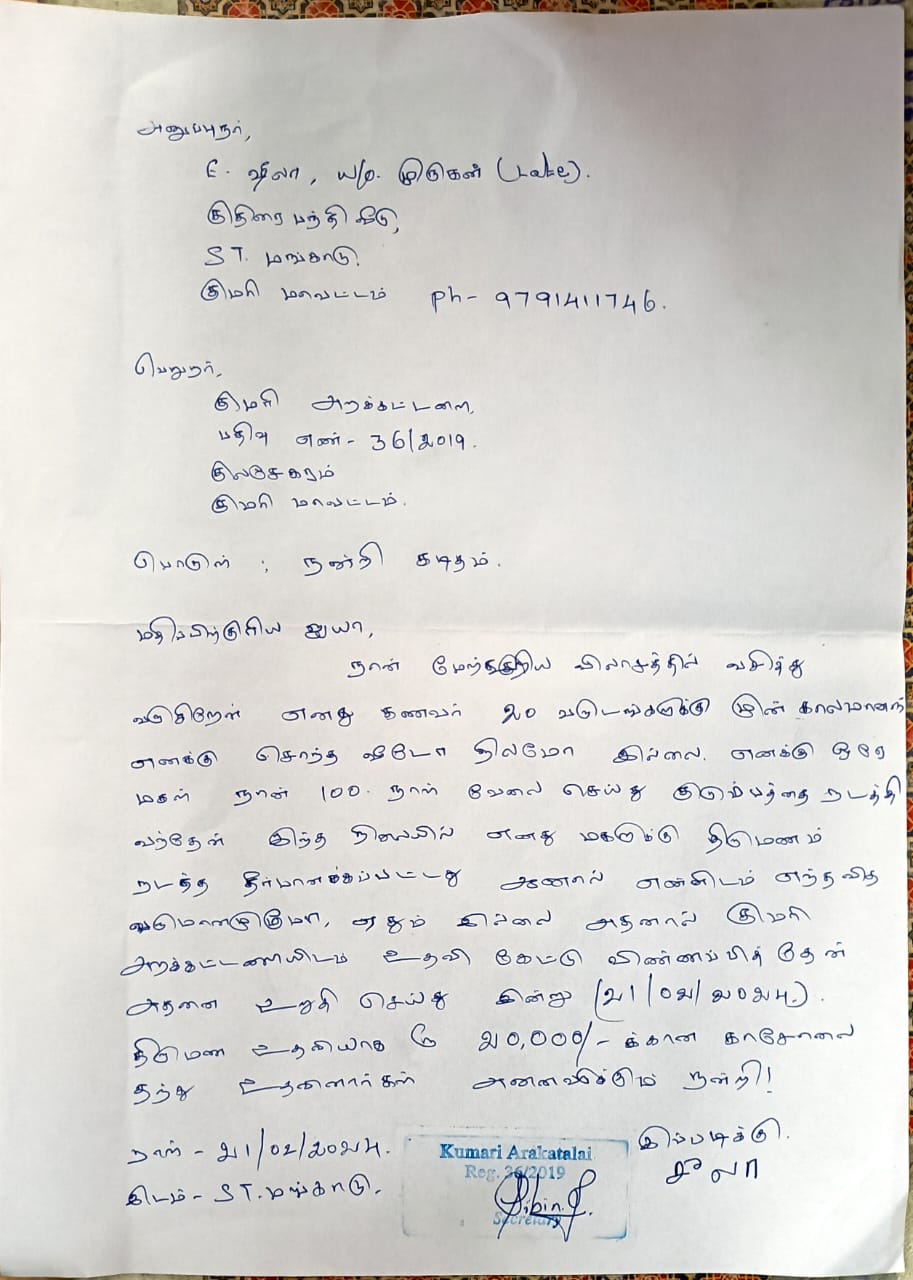 அனுப்புநர்,
E. ஷீலா, W/o. முருகன் (Late).
குதிரை பந்தி வீடு,
ST. மங்காடு.
குமரி மாவட்டம் ph- 9791411746.
பெறுநர்,
குமரி அறக்கட்டளை,
பதிவு எண்- 36/2019.
குலசேகரம்
குமரி மாவட்டம்.
பொருள் ; நன்றி கடிதம்.
மதிப்பிற்குரிய ஐயா,
நான் மேற்கூறிய விலாசத்தில் வசித்து
வருகிறேன் எனது கணவர் 20 வருடங்களுக்கு முன் காலமானார்
எனக்கு சொந்த வீடோ நிலமோ இல்லை. எனக்கு ஒரே
மகள் நான் 100. நாள் வேலை செய்து குடும்பத்தை நடத்தி
வந்தேன் இந்த நிலையில் எனது மகளுக்கு திருமணம்
நடத்த தீர்மானிக்கப்பட்டது ஆனால் என்னிடம் எந்த வித
வருமானமுமோ, ஏதும் இல்லை அதனால் குமரி
அறக்கட்டளையிடம் உதவி கேட்டு விண்ணப்பித்தேன்
அதனை உறுதி செய்து இன்று (21/02/2024.).
திருமண உதவியாக ரூ 20,000/- க்கான காசோலை
தந்து உதவினார்கள் அனைவருக்கும் நன்றி!
நாள் - 21/02/2024.
இடம் - ST. மங்காடு.
இப்படிக்கு.
ஷீலா
Kumari Arakatalai
Reg. 36/2019
Sibin.
Secretary